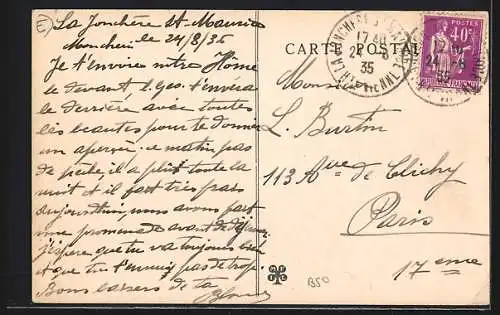 La Jonchère St Maurice
le 24/8/35
Je t'envoie notre Hôme
le devant Léo t'enverra
le derrière avec toutes
les beautés pour te donner
un aperçu, ce matin pas
de pêche il a plut toute la
nuit et il fait très frais
aujourd'hui nous avons fait
une promenade avant de déjeuner
j'espère que tu va toujours bien
et que tu t'ennuie pas de trop.
Bons baisers de ta
CARTE POSTALE
LA JONCHERE
17 40
24 - 8
35
POSTES
40c
17 40
24 - 8
35
Monsieur
L. Burtin
113 Ave de Clichy
Paris
17eme
B50